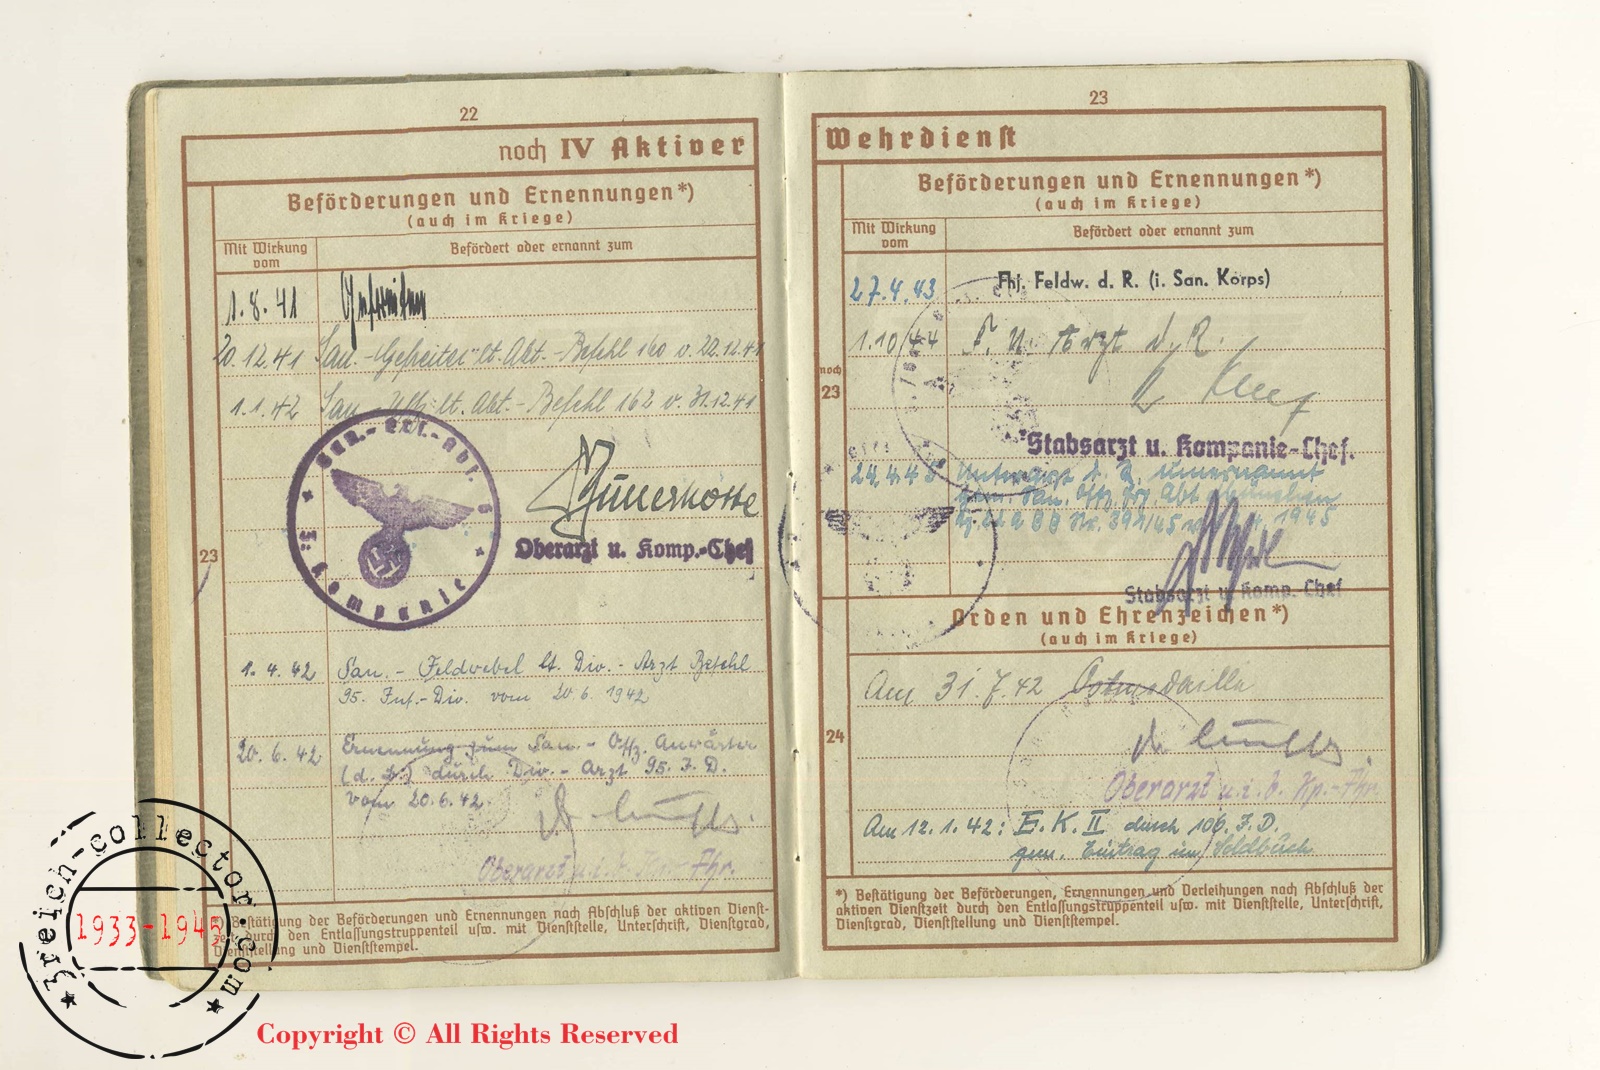 22
noch IV Aktiver
Beförderungen und Ernennungen*)
(auch im Kriege)
Mit Wirkung vom
Befördert oder ernannt zum
1.8.41 Gefreiten
20.12.41 San.-Gefreiter lt. Abt.-Befehl 160 v. 22.12.41
1.1.42 San.-Uffz. lt. Abt.-Befehl 162 v. 31.12.41
San.-Ers.-Abt. 6
3. Kompanie
Oberarzt u. Komp.-Chef
23
1.4.42 San.-Feldwebel lt. Div.-Arzt Befehl
95. Inf.-Div. vom 20.6.1942
20.6.42 Ernennung zum San.-Offz. Anwärter
(d. B.) durch Div.-Arzt 95. I.D.
vom 20.6.42.
Oberarzt u. Fhr.
Bestätigung der Beförderungen und Ernennungen nach Abschluß der aktiven Dienst-
zeit durch den Entlassungstruppenteil usw. mit Dienststelle, Unterschrift, Dienstgrad,
Dienststellung und Dienststempel.
23
Wehrdienst
Beförderungen und Ernennungen*)
(auch im Kriege)
Mit Wirkung vom
Befördert oder ernannt zum
27.4.43 Fhj. Feldw. d. R. (i. San. Korps)
1.10.44 F. U. Arzt d. R.
noch
23
Stabsarzt u. Kompanie-Chef.
24.4.45 Unterarzt d. R.
Stabsarzt u. Komp. Chef
Orden und Ehrenzeichen*)
(auch im Kriege)
Am 31.7.42 Ostmedaille
24
Oberarzt u. i. V. Kp.-Fhr.
Am 12.1.42: E.K. II durch 106. I.D.
gem. Eintrag im Soldbuch
*) Bestätigung der Beförderungen, Ernennungen und Verleihungen nach Abschluß der
aktiven Dienstzeit durch den Entlassungstruppenteil usw. mit Dienststelle, Unterschrift,
Dienstgrad, Dienststellung und Dienststempel.
3reich-collector.com
1933-1945
Copyright © All Rights Reserved